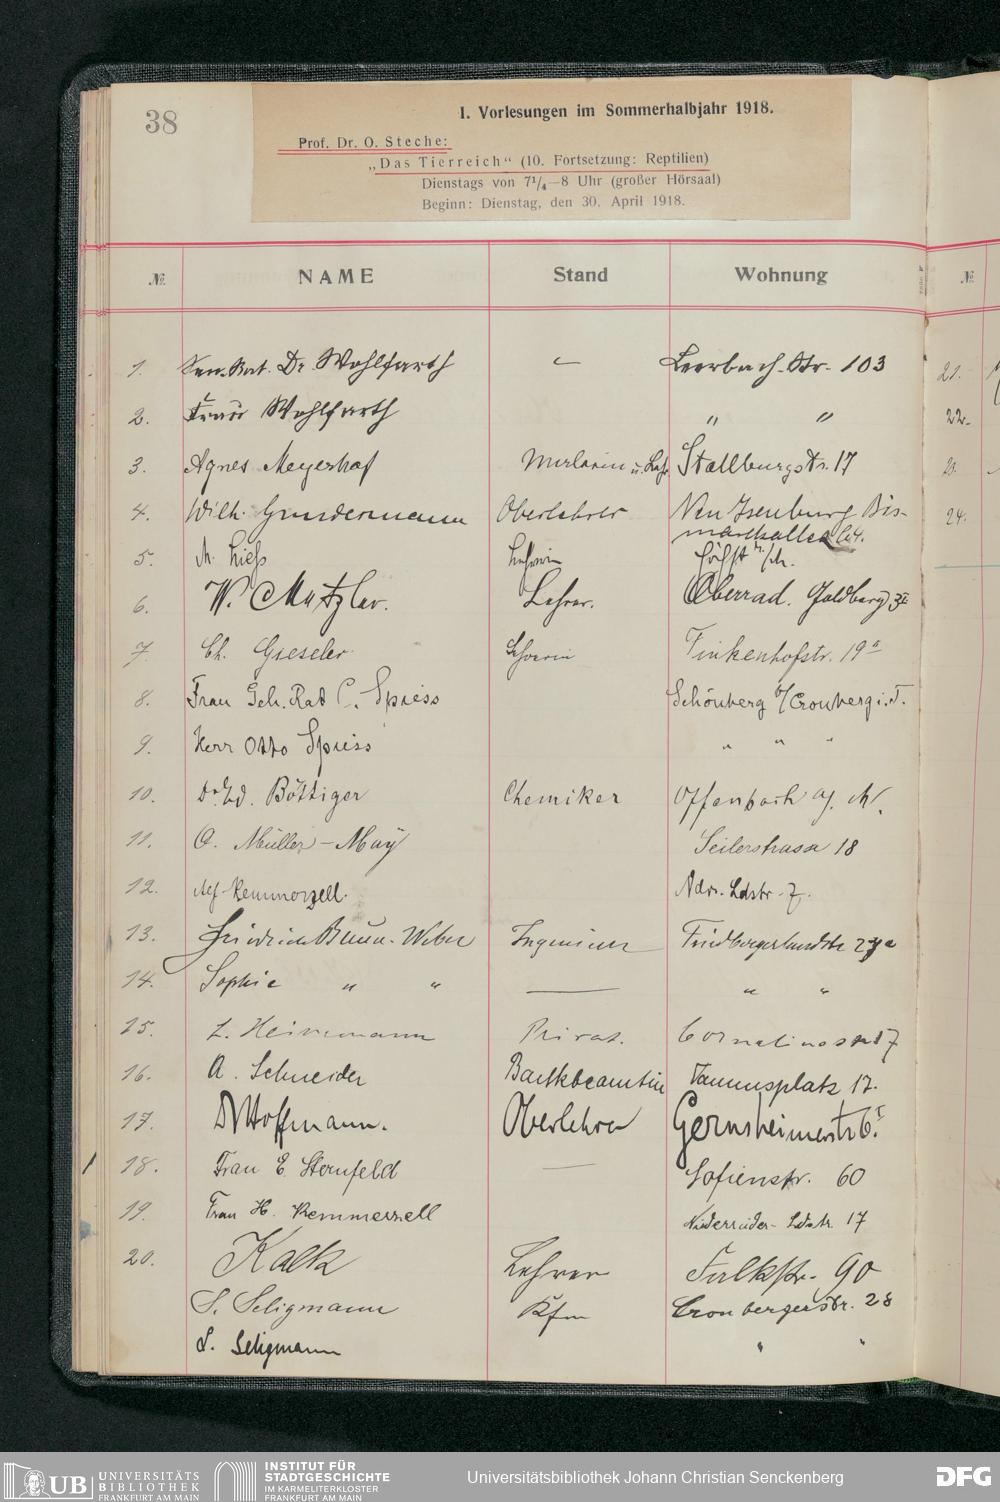 38
I. Vorlesungen im Sommerhalbjahr 1918.
Prof. Dr. O. Steche:
„Das Tierreich“ (10. Fortsetzung: Reptilien)
Dienstags von 7¼—8 Uhr (großer Hörsaal)
Beginn: Dienstag, den 30. April 1918.
№ NAME Stand Wohnung №
1. Dr Wohlfarth — Leerbach-Str. 103 21.
2. Frau Wohlfarth " " 22.
3. Agnes Meyerhof Malerin u. Stallburgstr. 17
4. Wilh. Gundermann Oberlehrer Neu Isenburg Bis- 24.
marckallee
5. Lehrerin Höchst a/M.
6. W. Metzler. Lehrer. Oberrad. Goldberg
7. Ch. Gieseler Lehrerin Finkenhofstr. 19
8. Frau Geh. Rat C. Spiess Schönberg b/Cronberg i. T.
9. Herr Otto Spiess " " "
10. Böttiger Chemiker Offenbach a/M.
11. Müller-May Seilerstrasse 18
12. Kemmerzell. Ndrr. Ldstr.
13. Friedrich Weber Ingenieur Friedbergerlandstr
14. Sophie " " — " "
15. L. Heinemann Privat. Corneliusstr 17
16. A. Schneider Bankbeamtin Taunusplatz 17.
17. Hoffmann. Oberlehrer Gernsheimerstr 6
18. Frau E. Sternfeld — Sofienstr. 60
19. Frau H. Kemmerzell Niederräder-Ldstr. 17
20. Kalk Lehrer Falkstr. 90
S. Seligmann Kfm Cronbergerstr. 28
S. Seligmann " "
UB UNIVERSITÄTS
BIBLIOTHEK
FRANKFURT AM MAIN
INSTITUT FÜR
STADTGESCHICHTE
IM KARMELITERKLOSTER
FRANKFURT AM MAIN
Universitätsbibliothek Johann Christian Senckenberg
DFG